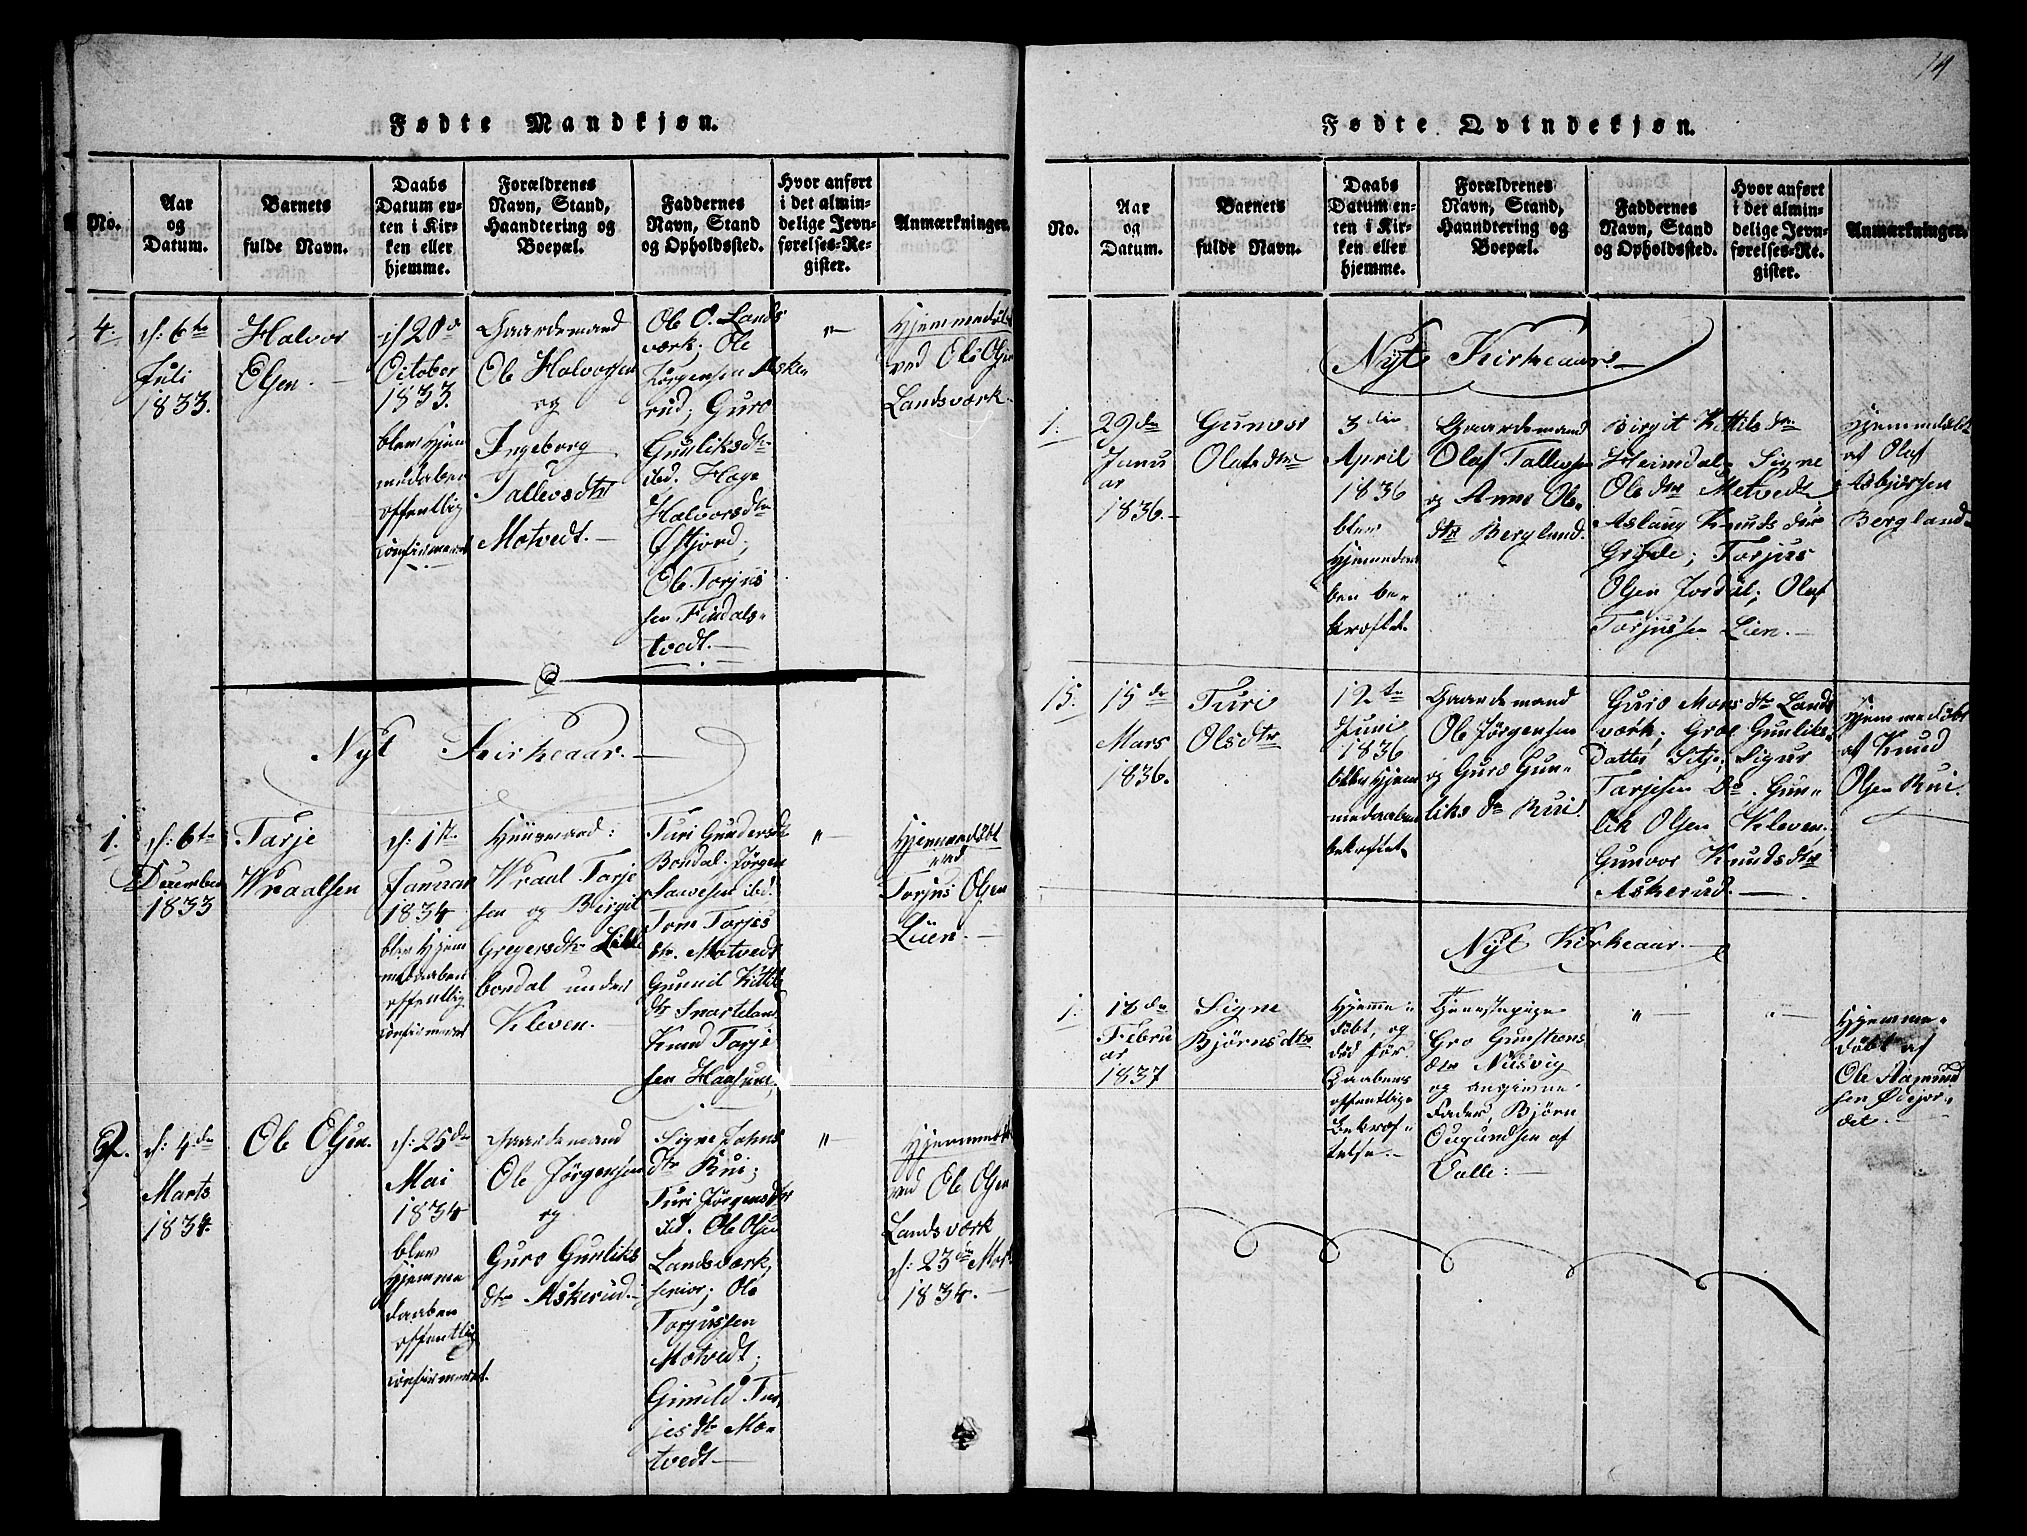 14
Fødte Mandkjøn.
No.
Aar
og
Datum.
Barnets
fulde Navn.
Daabs
Datum en-
ten i Kir-
ken eller
hjemme.
Forældrenes
Navn, Stand,
Haandtering og
Boepæl.
Faddernes
Navn, Stand
og Opholdssted.
Hvor anført
i det almin-
delige Jevn-
førelses-Re-
gister.
Anmærkninger.
4.
d: 6te
Juli
1833.
Halvor
Olsen.
d 20de
October
1833.
blev hjem
medaaben
offentlig
confirmeret
Gaardemand
Ole Halvorsen
og
Ingeborg
Tallevsdtr
Motvedt.
Ole O. Lands
værk; Ole
Jørgensen Aske-
rud; Guro
Gunliksdtr
ibd. Hæge
Halvorsdtr
Ole Torjus
sen Findals-
tvedt.
"
Hjemmedøbt
ved Ole Olsen
Landsværk
Nyt Kirkeaar.
1.
d: 6te
December
1833
Tarje
Wraalsen
d: 1ste
Januar
1834
blev hjem
medaaben
offentlig
confirmeret
Huusmand:
Wraal Tarje
sen og Birgit
Gregersdtr Lille
bordal under
Kleven.
Turi Gundersdtr
Bordal. Jørgen
Sawesen ibd.
Tom Torjus
dtr. Motvedt
Gunild Kittils
dtr Snarteland
Knud Tarje
sen Haasum,
"
Hjemmedøbt
ved
Torjus Olsen
Lien.
2.
d: 4de
Marts
1834.
Ole Olsen.
d: 25de
Mai
1834
blev
hjemme
daaben
offentlig
confirmeret.
Gaardemand
Ole Jørgensen
og
Guro Gunliks
dtr Askerud.
Signe Johns
dtr Rui;
Turi Jørgensdtr
ibd. Ole Olsen
Landsværk,
senior; Ole
Torjussen
Motvedt;
Gunild Tar-
jesdtr Mo-
tvedt.
"
Hjemmedøbt
ved Ole Olsen
Landsværk
d: 23de Mart
1834.
Fødte Qvindekjøn.
No.
Aar
og
Datum.
Barnets
fulde Navn.
Daabs
Datum en-
ten i Kir-
ken eller
hjemme.
Forældrenes
Navn, Stand,
Haandtering og
Boepæl.
Faddernes
Navn, Stand
og Opholdssted.
Hvor anført
i det almin-
delige Jevn-
førelses-Re-
gister.
Anmærkninger.
Nyt Kirkeaar.
1.
29de
Janu
ar
1836.
Gunvor
Olafsdtr
3die
April
1836
blev
Hjemmedaa
ben be-
kræftet.
Gaardemand
Olaf Tallevsen
og Anne Ole
dtr Bergland.
Birgit Kittilsdtr
Heimdal; Signe
Olsdtr Motvedt
Aslaug Knudsdtr
Grivle; Torjus
Olsen Jordal; Olaf
Torjussen Lien.
Hjemmedøbt
af Olaf
Asbjørsen
Bergland.
15.
15de
Mars
1836.
Turi
Olsdtr
12te
Juni
1836
blev hjem
medaaben
bekræftet.
Gaardemand
Ole Jørgensen
og Guro Gun-
liksdtr Rui.
Guro Monsdtr Lands
værk; Groe Gunliks-
datter Sitje; Sigur
Tarjesen Do. Gun-
lik Olsen Kleven.
Gunvor Knudsdtr
Askerud.
Hjemmedøbt
af Knud
Olsen Rui.
Nyt Kirkeaar.
1.
18de
Febru
ar
1837
Signe
Bjørnsdtr
Hjemme-
døbt, og
død før
Daabens
offentlige
Bekræf-
telse.
Tjenestepige
Gro Gunstens
dtr Nusvig
og angivne
Fader, Bjørn
Ougundsen af
Valle:
"
"
Hjemme-
døbt af
Ole Aamund
sen Ødejor-
det.